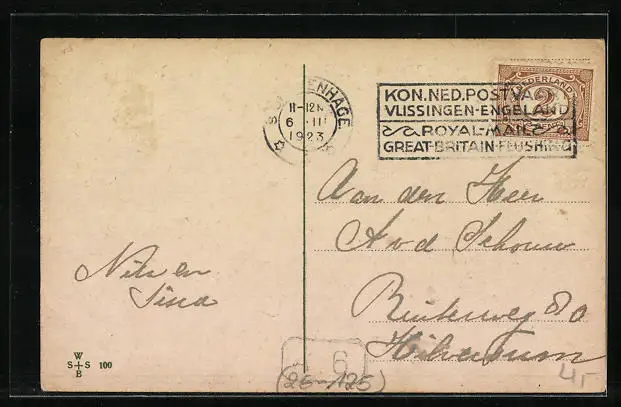 'S GRAVENHAGE
11-12N
6 III
1923
KON. NED. POSTVAART
VLISSINGEN-ENGELAND
ROYAL-MAIL
GREAT-BRITAIN-FLUSHING
NEDERLAND
2
Aan den Heer
A v d Schouw
Ruiterweg 80
Hilversum
Nils en
Sina
W
S S 100
B
6
(26-126)
4,-